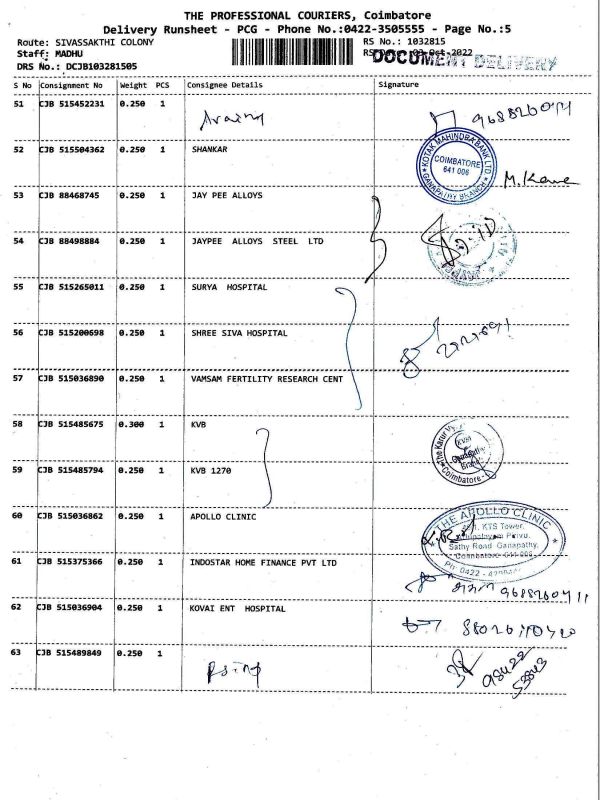 THE PROFESSIONAL COURIERS, Coimbatore
Delivery Runsheet - PCG - Phone No.:0422-3505555 - Page No.:5
Route: SIVASSAKTHI COLONY
RS No.: 1032815
Staff: MADHU
RS Date: 03-Oct-2022
DOCUMENT DELIVERY
DRS No.: DCJB103281505
S No Consignment No Weight PCS Consignee Details Signature
51 CJB 515452231 0.250 1
52 CJB 515504362 0.250 1 SHANKAR
KOTAK MAHINDRA BANK LTD.
COIMBATORE
641 006
GANAPATHY BRANCH
53 CJB 88468745 0.250 1 JAY PEE ALLOYS
54 CJB 88498884 0.250 1 JAYPEE ALLOYS STEEL LTD
55 CJB 515265011 0.250 1 SURYA HOSPITAL
56 CJB 515200698 0.250 1 SHREE SIVA HOSPITAL
57 CJB 515036890 0.250 1 VAMSAM FERTILITY RESEARCH CENT
58 CJB 515485675 0.300 1 KVB
The Karur
Coimbatore
59 CJB 515485794 0.250 1 KVB 1270
60 CJB 515036862 0.250 1 APOLLO CLINIC
THE APOLLO CLINIC
KTS Tower,
Sathy Road Ganapathy,
61 CJB 515375366 0.250 1 INDOSTAR HOME FINANCE PVT LTD
62 CJB 515036904 0.250 1 KOVAI ENT HOSPITAL
63 CJB 515489849 0.250 1